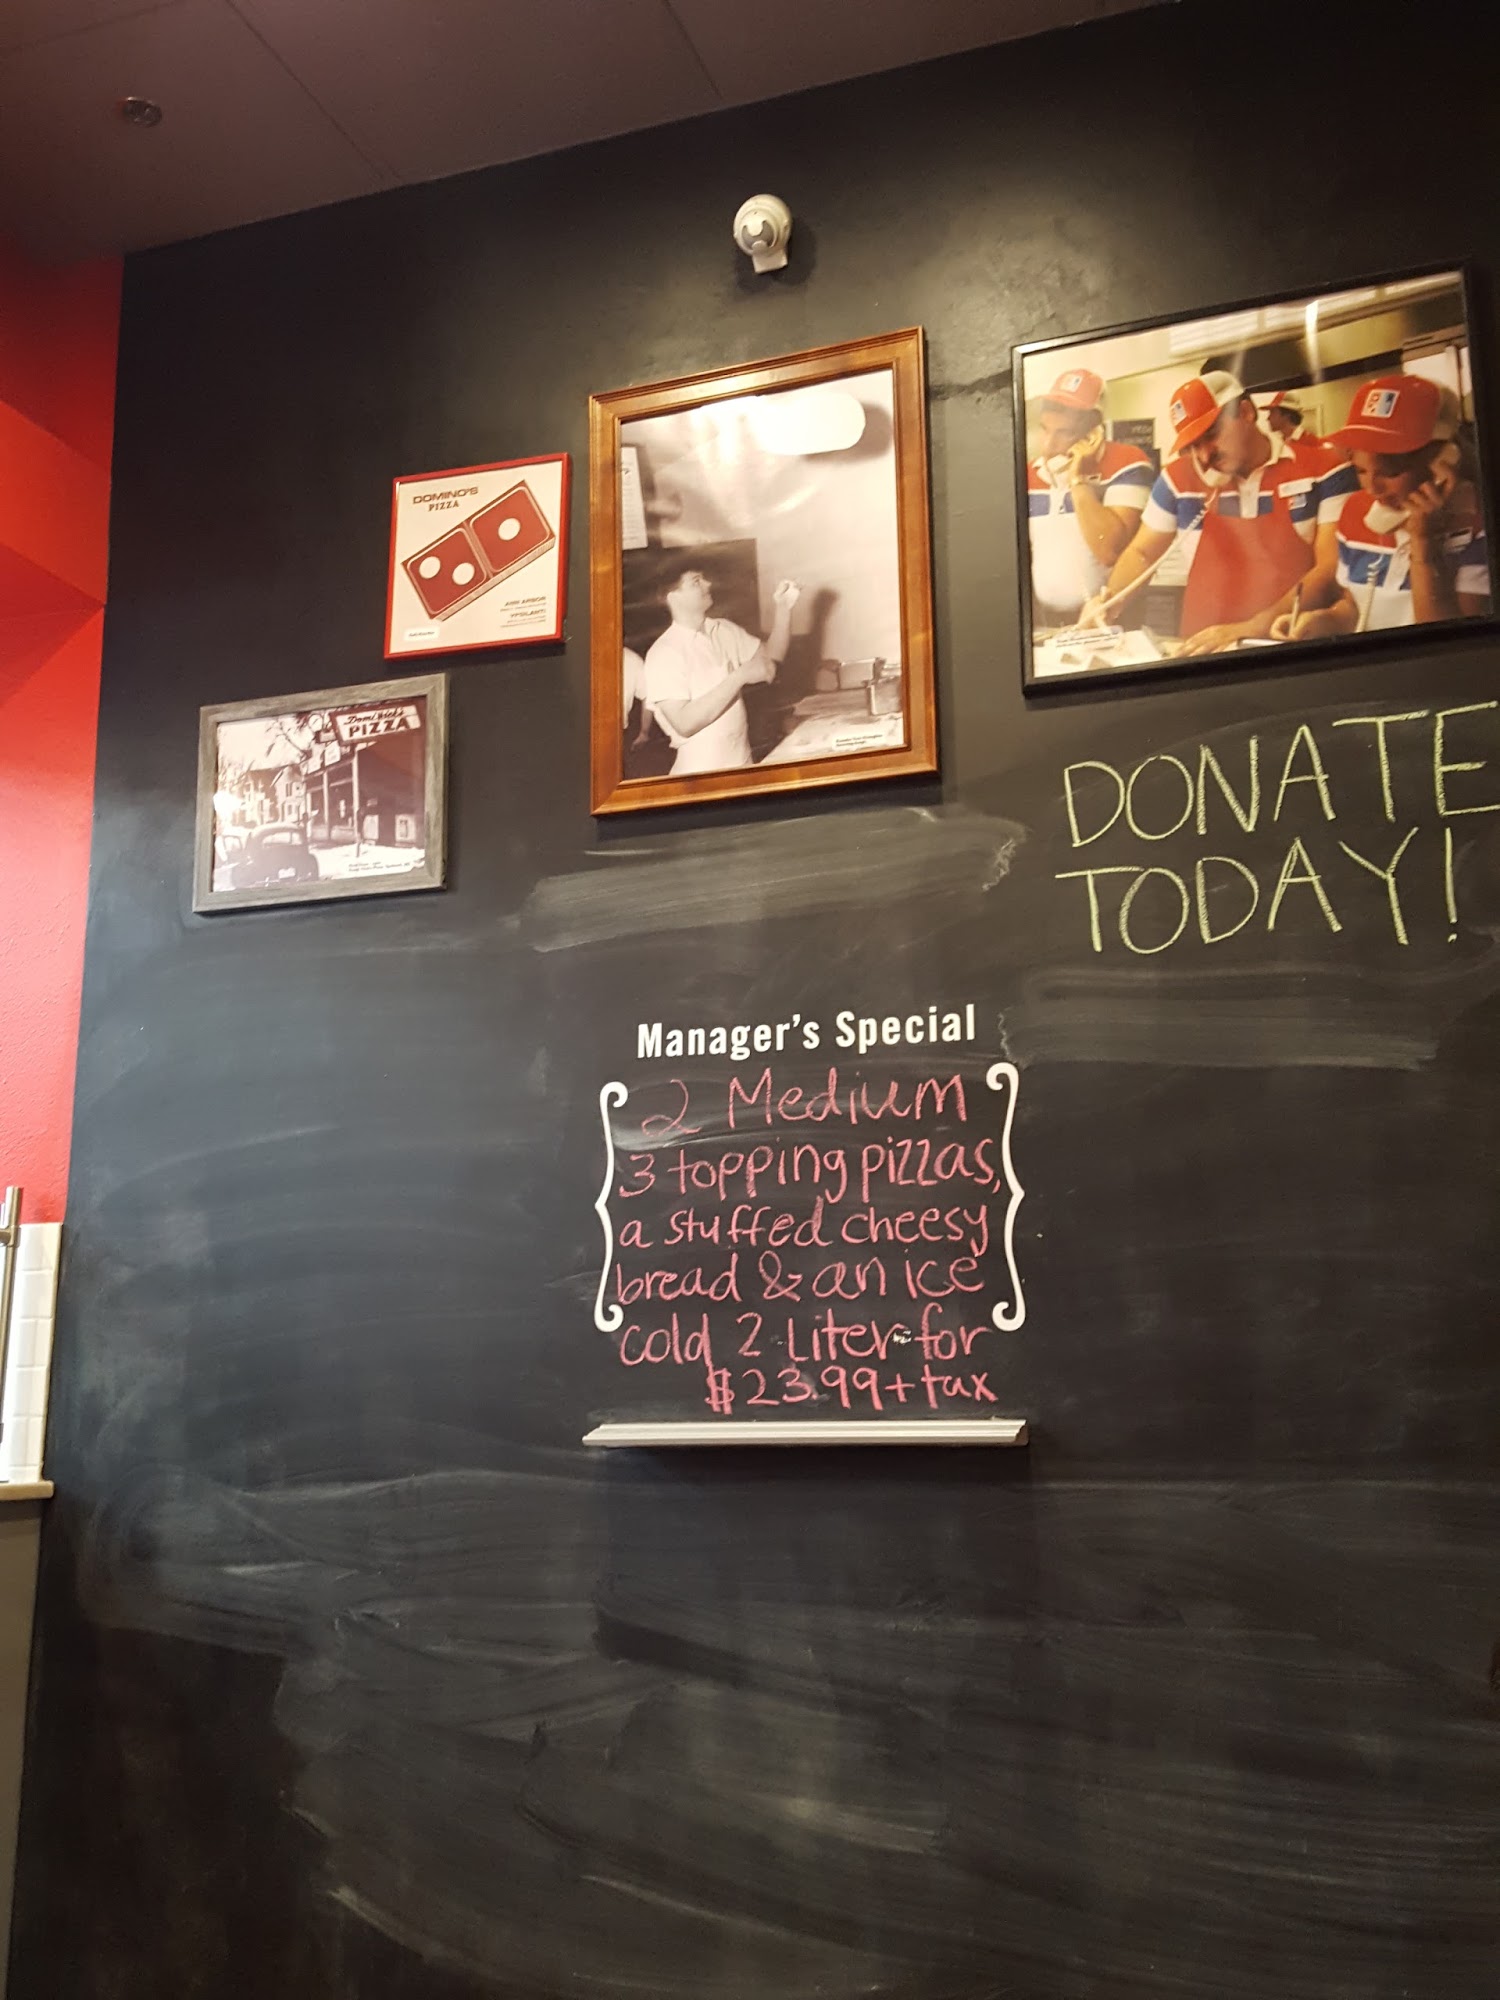 DOMINO'S
PIZZA
ANN ARBOR
YPSILANTI
DomiNick's
PIZZA
DONATE
TODAY!
Manager's Special
2 Medium
3 topping pizzas,
a stuffed cheesy
bread & an ice
cold 2 Liter for
$23.99 + tax